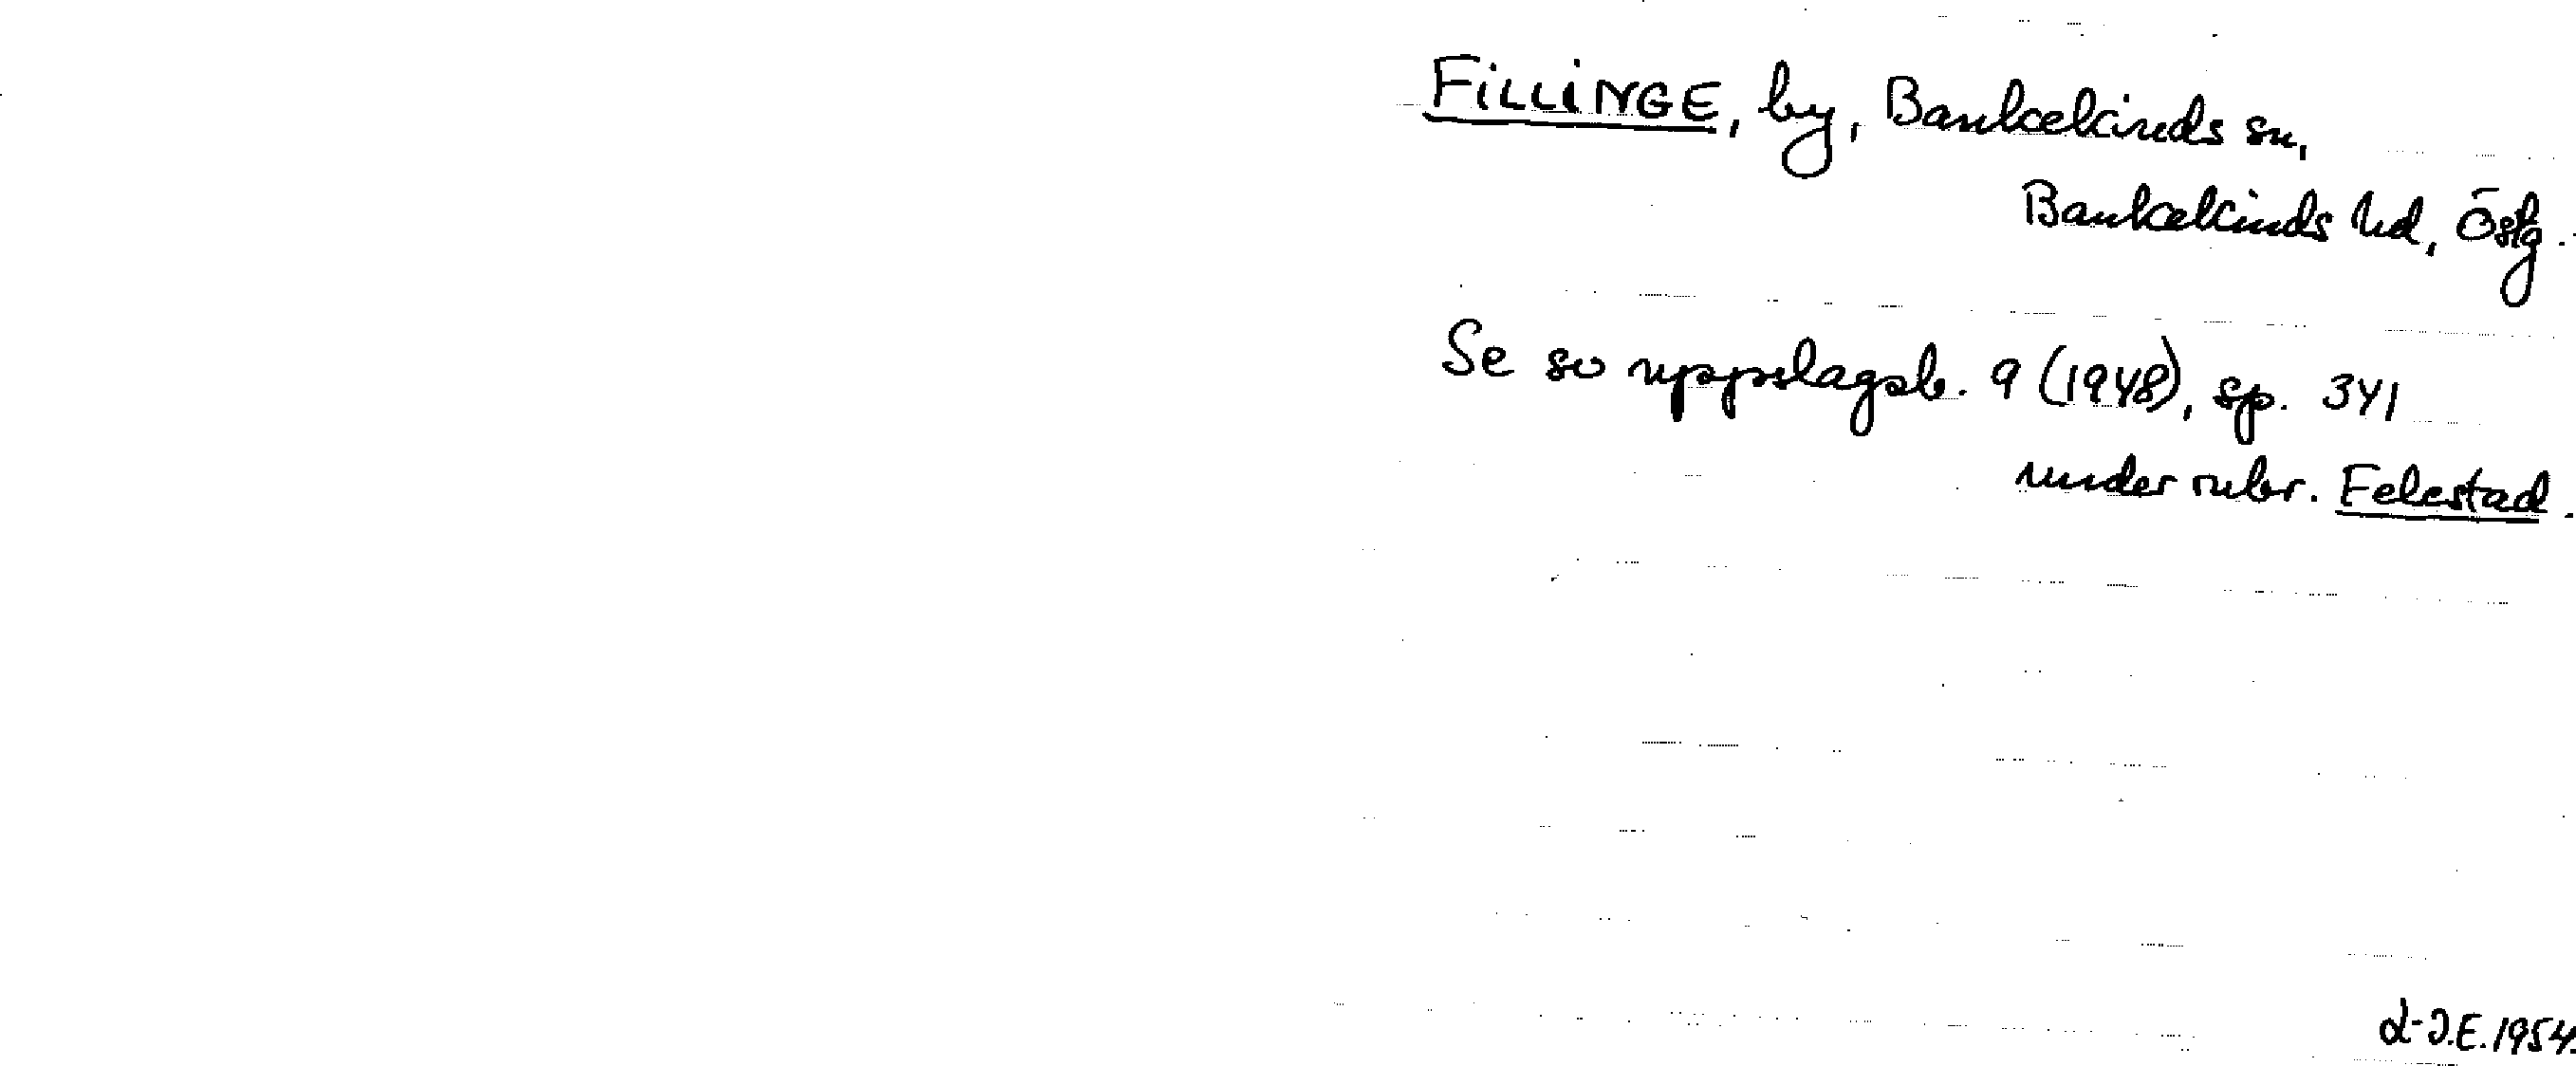 FiLLiNGE, by, Bankekinds sn,
Bankekinds hd, Östg.
Se sv uppslagsb. 9 (1948), sp. 341
under rubr. Felestad.
1954